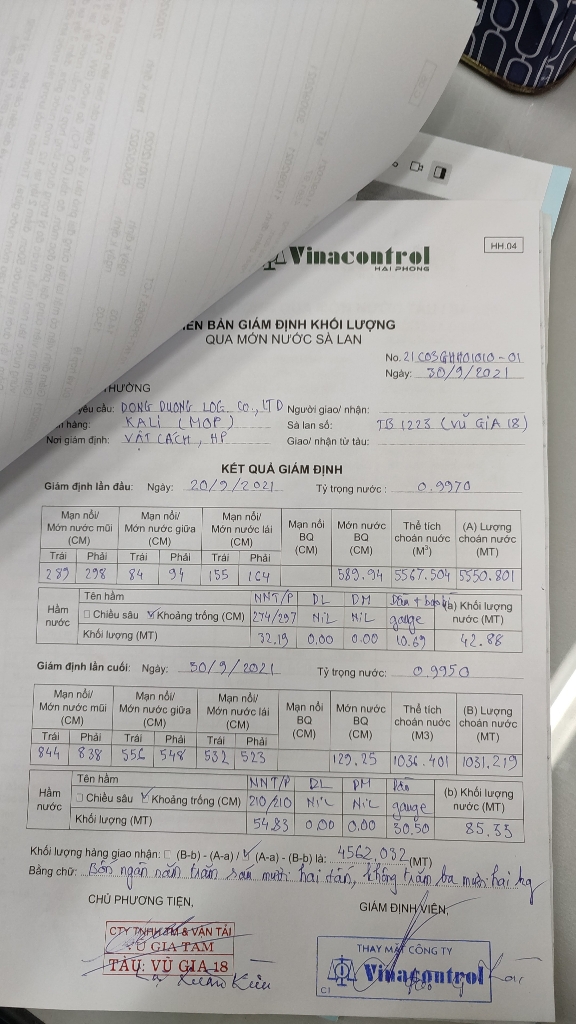 Vinacontrol
HAI PHONG
HH.04
BẢN GIÁM ĐỊNH KHỐI LƯỢNG
QUA MỚN NƯỚC SÀ LAN
No. 21C03GHH01010-01
Ngày: 30/9/2021
THƯỜNG
yêu cầu: DONG DUONG LOG. CO., LTD Người giao/ nhận:
hàng: KALI (MOP) Sà lan số: TB 1223 (VŨ GIA 18)
Nơi giám định: VẬT CÁCH, HP Giao/ nhận từ tàu:
KẾT QUẢ GIÁM ĐỊNH
Giám định lần đầu: Ngày: 20/9/2021 Tỷ trọng nước: 0.9970
Mạn nổi/ Mớn nước mũi (CM) Mạn nổi/ Mớn nước giữa (CM) Mạn nổi/ Mớn nước lái (CM) Mạn nổi BQ (CM) Mớn nước BQ (CM) Thể tích choán nước (M³) (A) Lượng choán nước (MT)
Trái Phải Trái Phải Trái Phải
289 298 84 94 155 164 589.94 5567.504 5550.801
Hầm nước Tên hầm NNT/P DL DM Dằn + (a) Khối lượng nước (MT)
Chiều sâu Khoảng trống (CM) 274/297 NiL NiL gauge
Khối lượng (MT) 32.19 0.00 0.00 10.69 42.88
Giám định lần cuối: Ngày: 30/9/2021 Tỷ trọng nước: 0.9950
Mạn nổi/ Mớn nước mũi (CM) Mạn nổi/ Mớn nước giữa (CM) Mạn nổi/ Mớn nước lái (CM) Mạn nổi BQ (CM) Mớn nước BQ (CM) Thể tích choán nước (M3) (B) Lượng choán nước (MT)
Trái Phải Trái Phải Trái Phải
844 838 556 548 532 523 129.25 1036.401 1031.219
Hầm nước Tên hầm NNT/P DL DM (b) Khối lượng nước (MT)
Chiều sâu Khoảng trống (CM) 210/210 NiL NiL gauge
Khối lượng (MT) 54.83 0.00 0.00 30.50 85.33
Khối lượng hàng giao nhận: (B-b) - (A-a) / (A-a) - (B-b) là: 4562.032 (MT)
Bằng chữ: Bốn ngàn năm trăm sáu mươi hai tấn, không trăm ba mươi hai kg
CHỦ PHƯƠNG TIỆN, GIÁM ĐỊNH VIÊN,
CTY TNHH TM & VẬN TẢI
VŨ GIA TAM
TÀU: VŨ GIA 18
Xuân Kiên
THAY MẶT CÔNG TY
Vinacontrol
C1